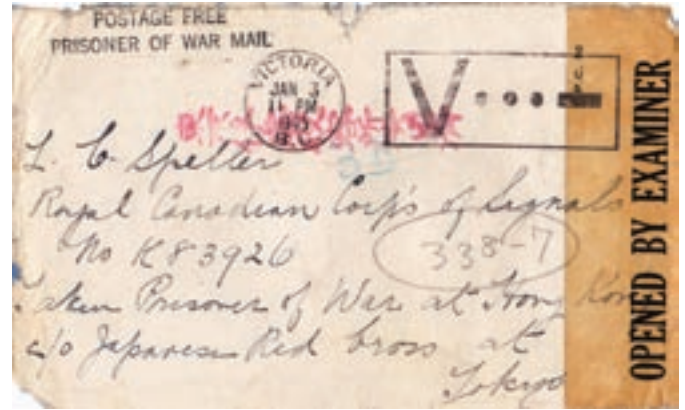 POSTAGE FREE
PRISONER OF WAR MAIL
VICTORIA
JAN 3
11 PM
V...–
L. C. Speller
Royal Canadian Corp's of Signals
No K83926
338-7
Taken Prisoner of War at Hong Kong
c/o Japanese Red Cross at
Tokyo
OPENED BY EXAMINER